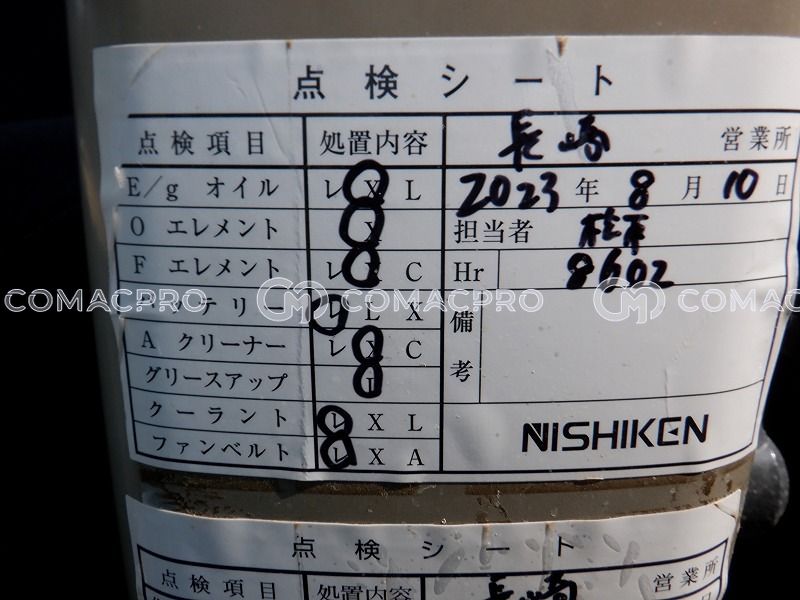 点検シート
点検項目 処置内容 長崎 営業所
E/g オイル レ X L 2023年 8月 10日
O エレメント X 担当者
F エレメント レ X C Hr 8602
バッテリー レ L X 備考
A クリーナー レ X C
グリースアップ L
クーラント レ X L
ファンベルト レ X A
NISHIKEN
COMACPRO COMACPRO COMAC
点検シート
点検項目 処置内容 長崎 営業所